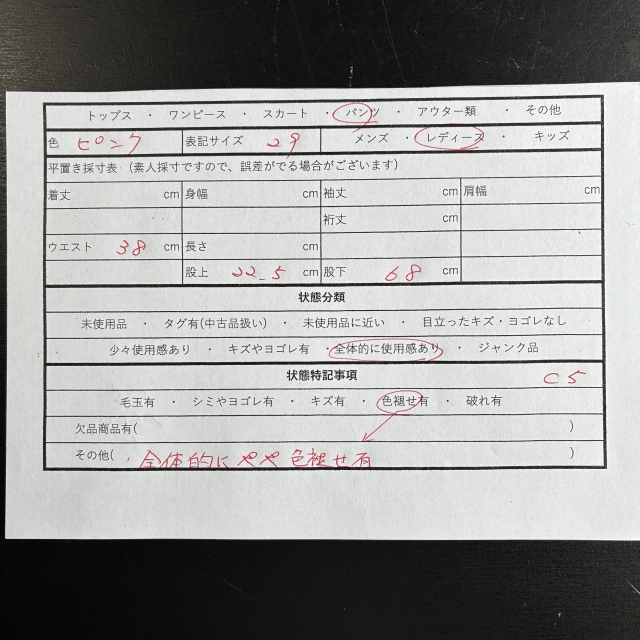 トップス ・ ワンピース ・ スカート ・ パンツ ・ アウター類 ・ その他
色 ピンク 表記サイズ 29 メンズ ・ レディース ・ キッズ
平置き採寸表（素人採寸ですので、誤差がでる場合がございます）
着丈 cm 身幅 cm 袖丈 cm 肩幅 cm
裄丈 cm
ウエスト 38 cm 長さ cm
股上 22.5 cm 股下 68 cm
状態分類
未使用品 ・ タグ有(中古品扱い) ・ 未使用品に近い ・ 目立ったキズ・ヨゴレなし
少々使用感あり ・ キズやヨゴレ有 ・ 全体的に使用感あり ・ ジャンク品
状態特記事項 C5
毛玉有 ・ シミやヨゴレ有 ・ キズ有 ・ 色褪せ有 ・ 破れ有
欠品商品有( )
その他( ・全体的にやや色褪せ有 )